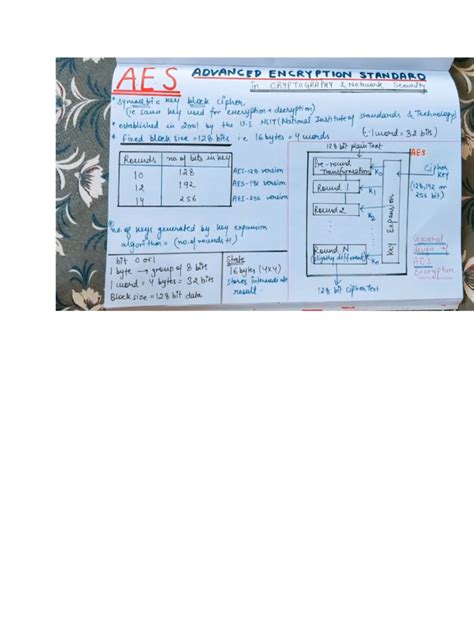 AES ADVANCED ENCRYPTION STANDARD
in CRYPTOGRAPHY & Network Security
* Symmetric key block cipher.
(ie same key used for encryption & decryption)
* established in 2001 by the U.S NSIT (National Institute of Standards & Technology)
* fixed block size = 128 bits i.e. 16 bytes = 4 words
(∵ 1 word = 32 bits)
Rounds no. of bits in key
10 128 AES-128 version
12 192 AES-192 version
14 256 AES-256 version
no. of keys generated by key expansion
algorithm = (no. of rounds + 1)
bit 0 or 1
1 byte → group of 8 bits
1 word = 4 bytes = 32 bits
Block size = 128 bit data
State
16 bytes (4x4)
stores intermediate
result.
128 bit plain Text
AES
Pre-round
Transformation
K0
Round 1
K1
Round 2
K2
Round N
(slightly different)
Kn
Key Expansion
Cipher
Key
(128, 192 or
256 bit)
128 bit cipher Text
General
design of
AES
Encryption